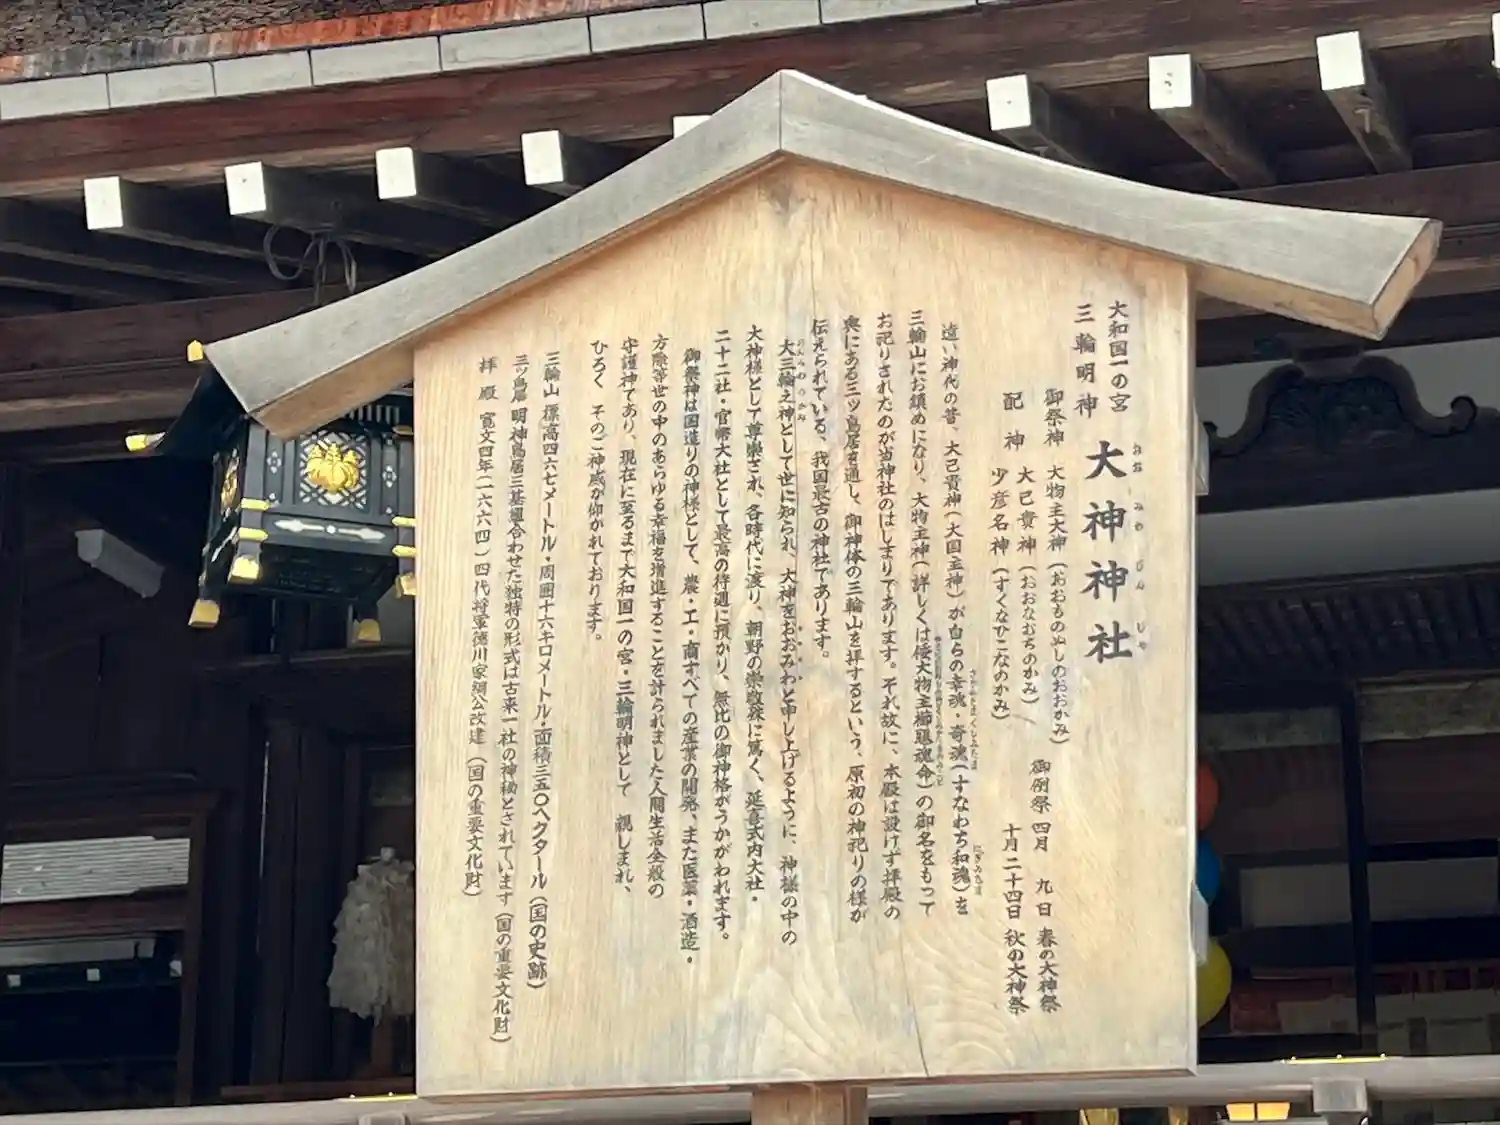 大和国一の宮
三輪明神
大神神社
おお みわ じん じゃ
御祭神 大物主大神（おおものぬしのおおかみ）
配神 大己貴神（おおなむちのかみ）
少彦名神（すくなひこなのかみ）
御例祭 四月 九日 春の大神祭
十月二十四日 秋の大神祭
遠い神代の昔、大己貴神（大国主神）が自らの幸魂・奇魂（すなわち和魂）を
三輪山にお鎮めになり、大物主神（詳しくは倭大物主櫛𤭖魂命）の御名をもって
お祀りされたのが当神社のはじまりであります。それ故に、本殿は設けず拝殿の
奥にある三ッ鳥居を通し、御神体の三輪山を拝するという、原初の神祀りの様が
伝えられている、我国最古の神社であります。
大三輪之神として世に知られ、大神をおおみわと申し上げるように、神様の中の
大神様として尊崇され、各時代に渡り、朝野の崇敬殊に篤く、延喜式内大社・
二十二社・官幣大社として最高の待遇に預かり、無比の御神格がうかがわれます。
御祭神は国造りの神様として、農・工・商すべての産業の開発、また医薬・酒造・
方除等世の中のあらゆる幸福を増進することを計られました人間生活全般の
守護神であり、現在に至るまで大和国一の宮・三輪明神として 親しまれ、
ひろく そのご神威が仰がれております。
三輪山 標高四六七メートル・周囲十六キロメートル・面積三五〇ヘクタール（国の史跡）
三ッ鳥居 明神鳥居三基組合わせた独特の形式は古来一社の神秘とされています（国の重要文化財）
拝殿 寛文四年（一六六四）四代将軍徳川家綱公改建（国の重要文化財）